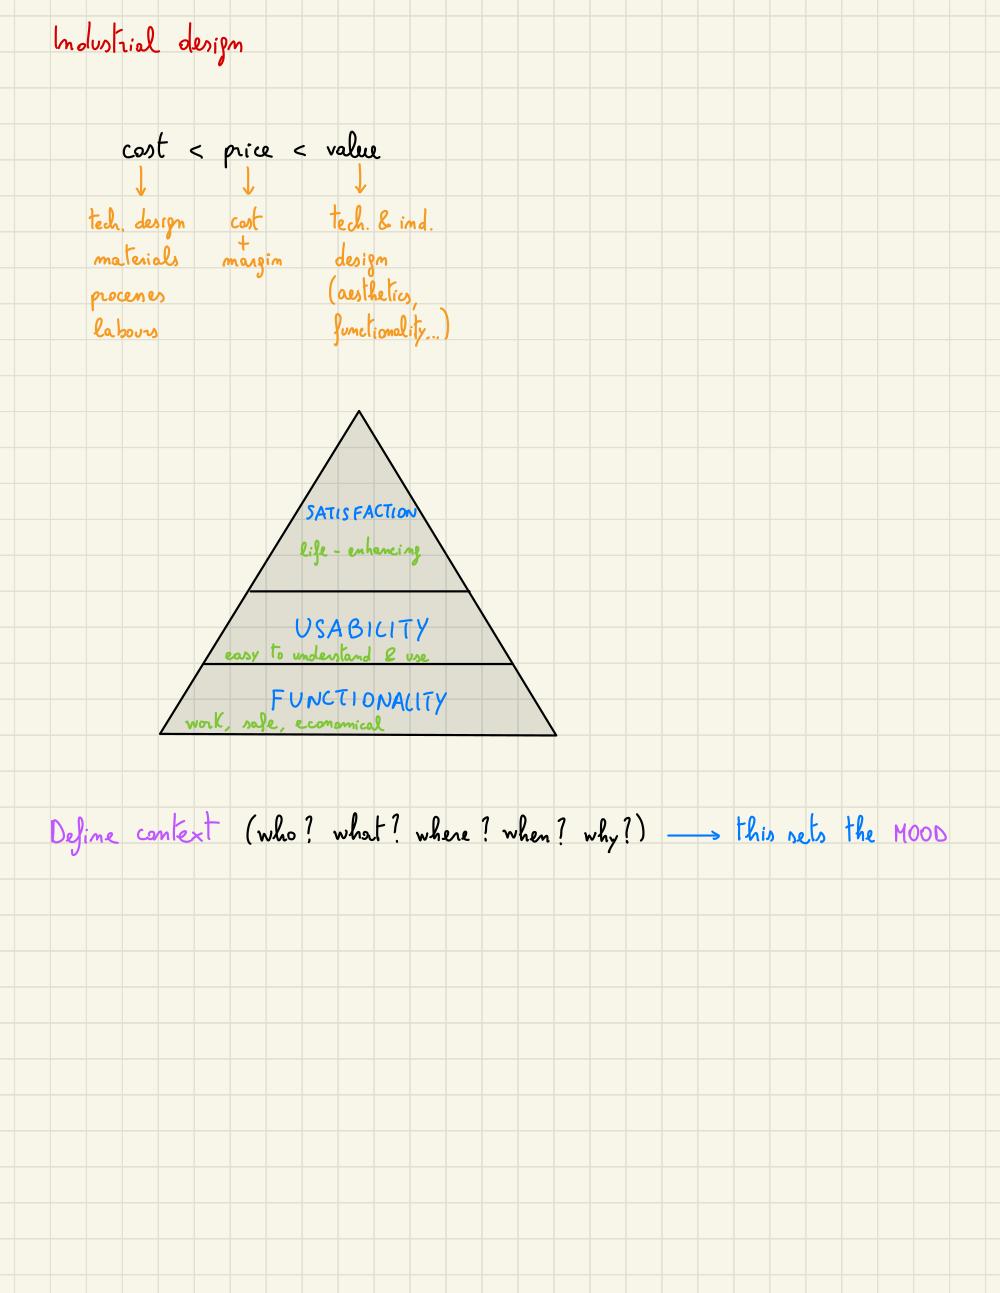 Industrial design
cost < price < value
tech. design
materials
processes
labours
cost
+
margin
tech. & ind.
design
(aesthetics,
functionality...)
SATISFACTION
life - enhancing
USABILITY
easy to understand & use
FUNCTIONALITY
work, safe, economical
Define context (who? what? where? when? why?) → this sets the MOOD